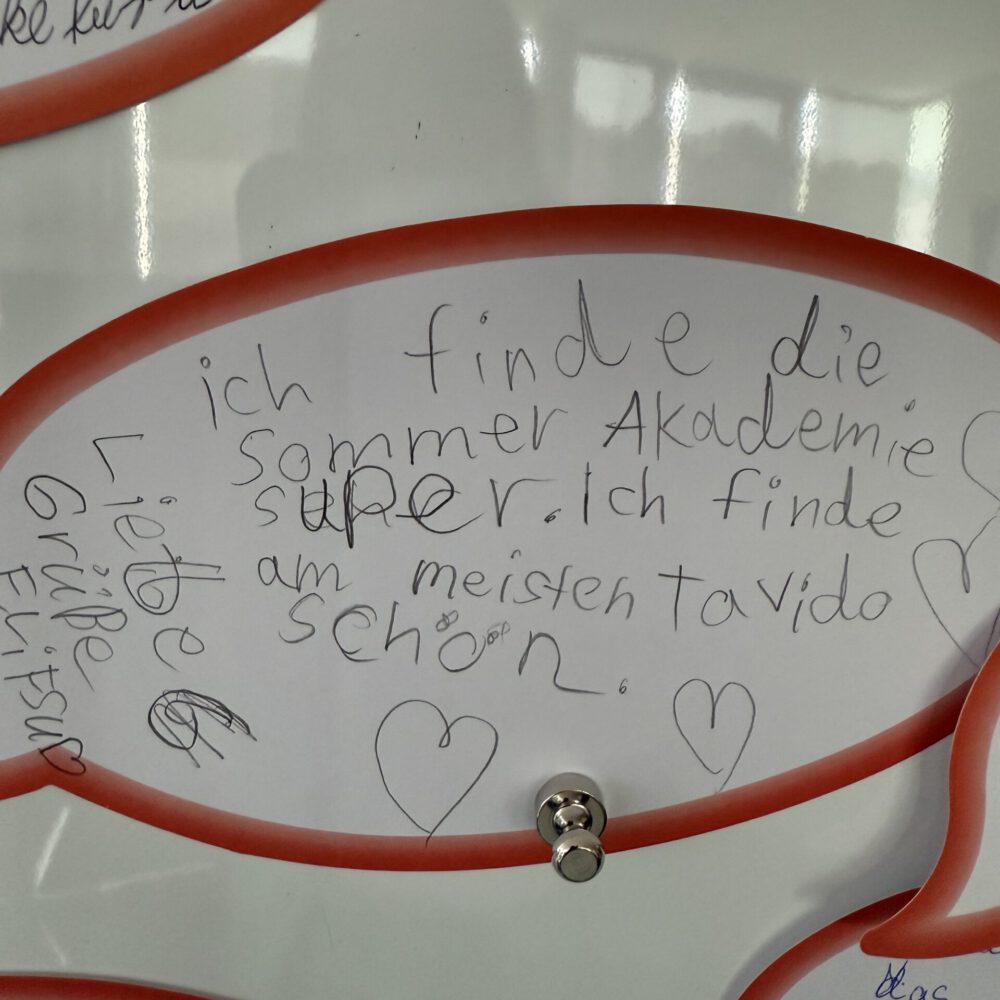 ich finde die
sommer Akademie
super. Ich finde
am meisten Tavido
schön.
Liebe
Grüße